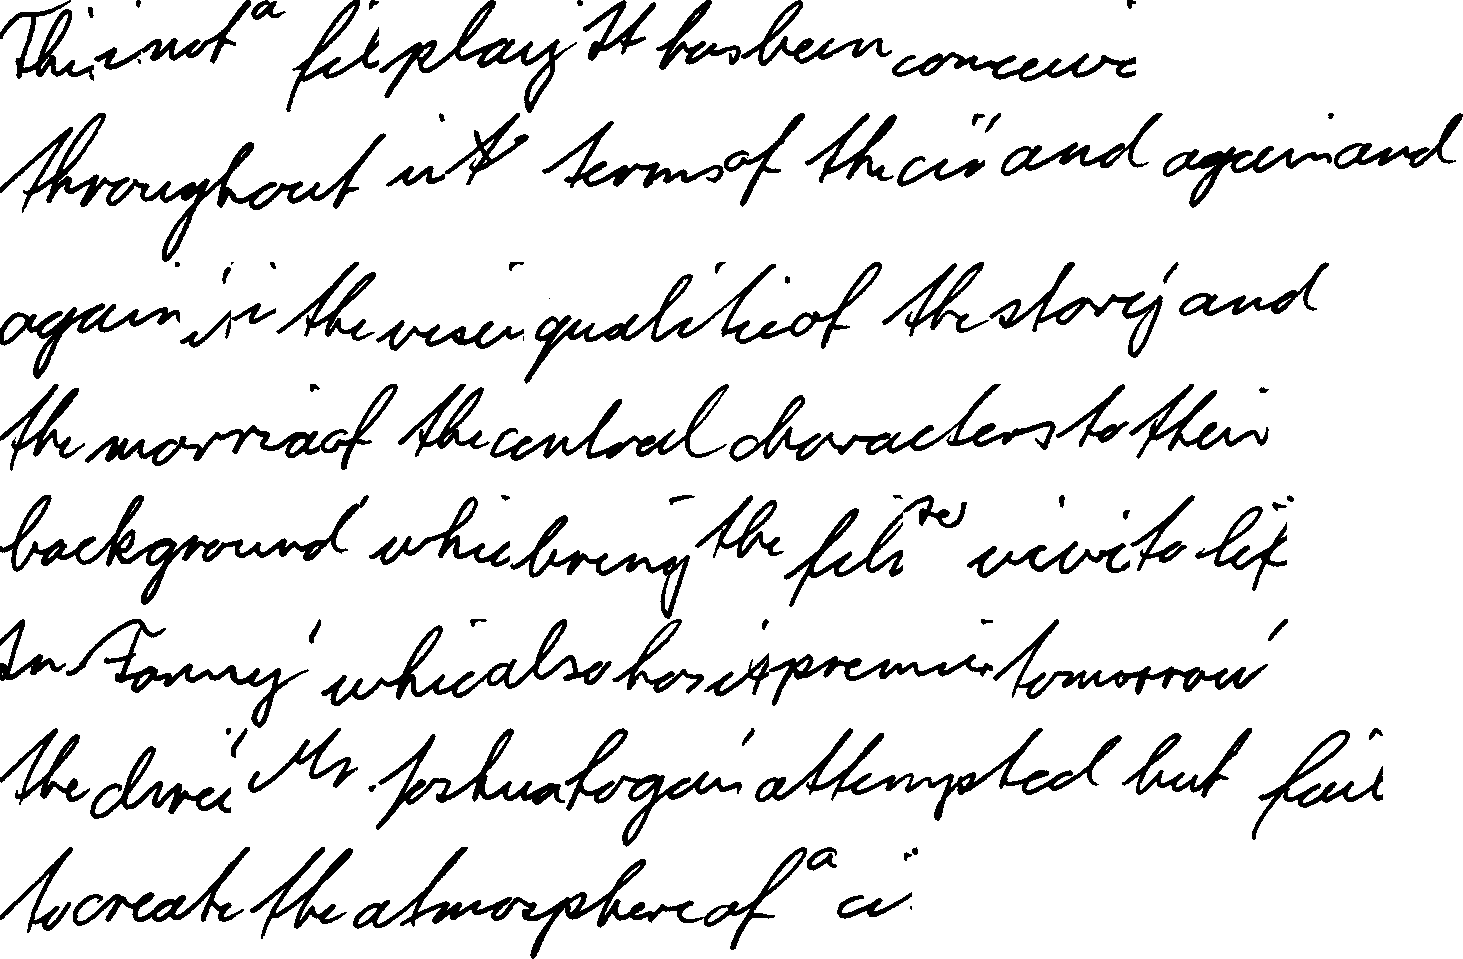 This is not a film play It has been conceive
throughout in terms of the cine and again and
again it is the visual qualities of the story and
the marriage of the central characters to their
background which bring the film so vividly to life
In Fanny which also has its premiere tomorrow
the director Mr. Joshua Logan attempted but failed
to create the atmosphere of a